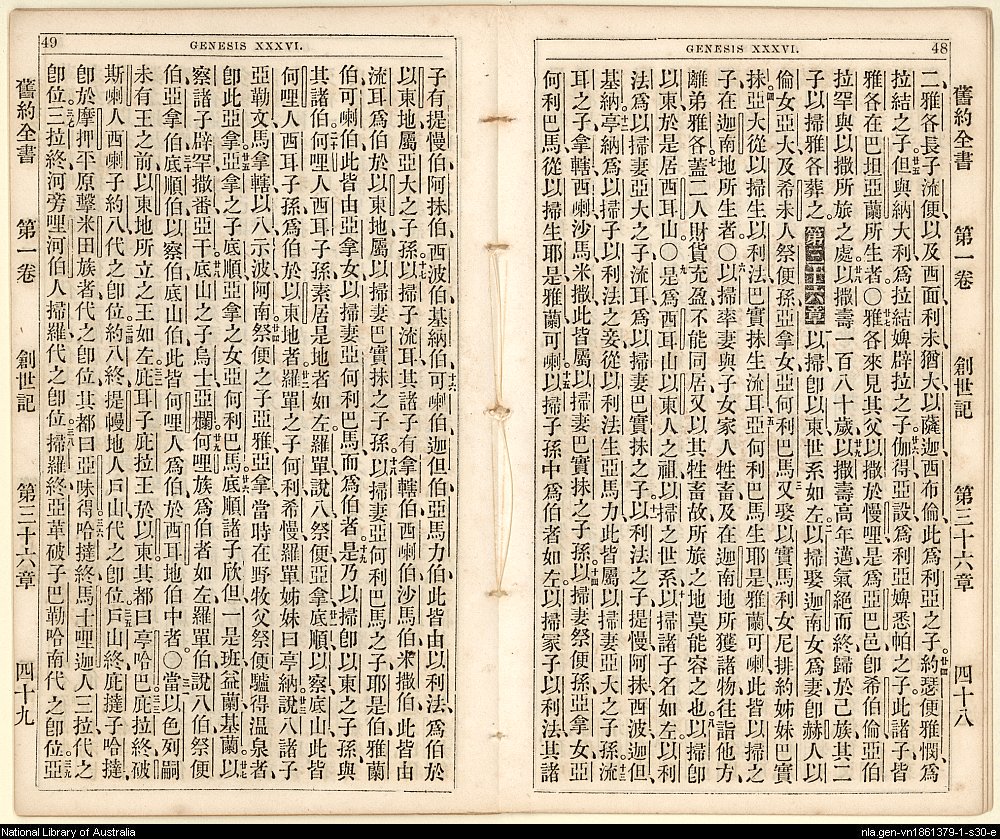 GENESIS XXXVI. 48
舊約全書 第一卷 創世記 第三十六章 四十八
二、雅各長子流便以及西面利未猶大以薩迦西布倫此爲利亞之子約瑟便雅憫爲
拉結之子但與納大利爲拉結婢辟拉之子伽得亞設爲利亞婢悉帕之子此諸子皆
雅各在巴坦亞蘭所生者〇雅各來見其父以撒於慢哩是爲亞巴邑卽希伯倫亞伯
拉罕與以撒所旅之處以撒壽一百八十歲以撒壽高年邁氣絕而終歸於己族其二
子以掃雅各葬之 第三十六章 以掃卽以東世系如左以掃娶迦南女爲妻卽赫人以
倫女亞大及希未人祭便孫亞拿女亞何利巴馬又娶以實馬利女尼排約姊妹巴實
抹亞大從以掃生以利法巴實抹生流耳亞何利巴馬生耶是雅蘭可喇此皆以掃之
子在迦南地所生者〇以掃率妻與子女家人牲畜及在迦南地所獲諸物往詣他方
離弟雅各蓋二人財貨充盈不能同居又以其牲畜故所旅之地莫能容之也以掃卽
以東於是居西耳山〇是爲西耳山以東人之祖以掃之世系以掃諸子名如左以利
法爲以掃妻亞大之子流耳爲以掃妻巴實抹之子以利法之子提慢阿抹西波迦但
基納亭納爲以掃子以利法之妾從以利法生亞馬力此皆屬以掃妻亞大之子孫流
耳之子拿轄西喇沙馬米撒此皆屬以掃妻巴實抹之子孫以掃妻祭便孫亞拿女亞
何利巴馬從以掃生耶是雅蘭可喇以掃子孫中爲伯者如左以掃冢子以利法其諸
49 GENESIS XXXVI.
子有提慢伯阿抹伯西波伯基納伯可喇伯迦但伯亞馬力伯此皆由以利法爲伯於
以東地屬亞大之子孫以掃子流耳其諸子有拿轄伯西喇伯沙馬伯米撒伯此皆由
流耳爲伯於以東地屬以掃妻巴實抹之子孫以掃妻亞何利巴馬之子耶是伯雅蘭
伯可喇伯此皆由亞拿女以掃妻亞何利巴馬而爲伯者是乃以掃卽以東之子孫與
其諸伯何哩人西耳子孫素居是地者如左羅單說八祭便亞拿底順以察底山此皆
何哩人西耳子孫爲伯於以東地者羅單之子何利希慢羅單姊妹曰亭納說八諸子
亞勒文馬拿轄以八示波阿南祭便之子亞雅亞拿當時在野牧父祭便驢得温泉者
卽此亞拿亞拿之子底順亞拿之女亞何利巴馬底順諸子欣但一是班益蘭基蘭以
察諸子辟罕撒番亞干底山之子烏士亞欄何哩族爲伯者如左羅單伯說八伯祭便
伯亞拿伯底順伯以察伯底山伯此皆何哩人爲伯於西耳地伯中者〇當以色列嗣
未有王之前以東地所立之王如左庇耳子庇拉王於以東其都曰亭哈巴庇拉終破
斯喇人西喇子約八代之卽位約八終提幔地人戶山代之卽位戶山終庇撻子哈撻
卽於摩押平原擊米田族者代之卽位其都曰亞味得哈撻終馬士哩迦人三拉代之
卽位三拉終河旁哩河伯人掃羅代之卽位掃羅終亞革破子巴勒哈南代之卽位亞
舊約全書 第一卷 創世記 第三十六章 四十九
National Library of Australia
nla.gen-vn1861379-1-s30-e